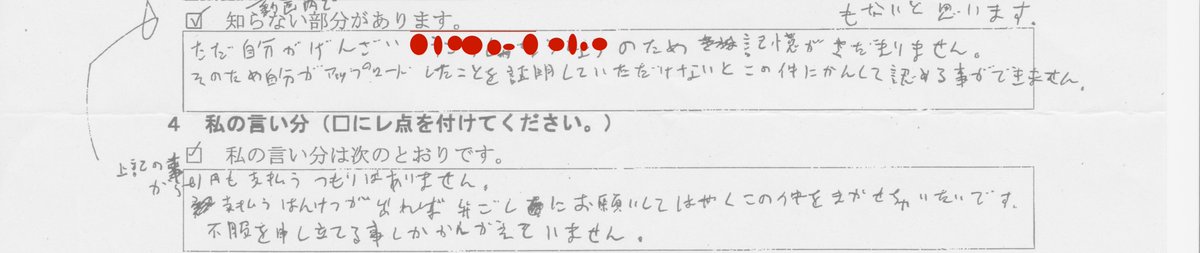 もないと思います。
知らない部分があります。
ただ自分がげんざい のため 記憶がさだまりません。
そのため自分がアップロードしたことを証明していただけないとこの件にかんして認める事ができません。
4 私の言い分(□にレ点を付けてください。)
☑ 私の言い分は次のとおりです。
上記の事から
1円も支払うつもりはありません。
支払うはんけつが出れば弁ごし にお願いしてはやくこの件をまかせたいです。
不服を申し立てる事しかかんがえていません。